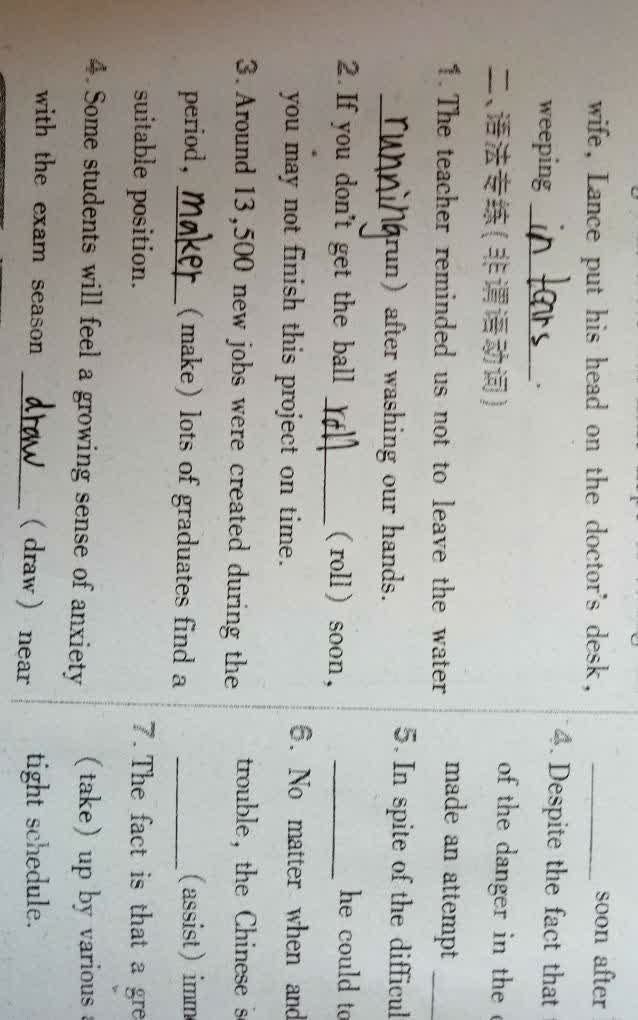 wife, Lance put his head on the doctor's desk,
weeping in tears.
二、语法专练(非谓语动词)
1. The teacher reminded us not to leave the water
running(run) after washing our hands.
2. If you don't get the ball roll (roll) soon,
you may not finish this project on time.
3. Around 13,500 new jobs were created during the
period, maker (make) lots of graduates find a
suitable position.
4. Some students will feel a growing sense of anxiety
with the exam season draw (draw) near
soon after
4. Despite the fact that
of the danger in the
made an attempt
5. In spite of the difficul
he could to
6. No matter when and
trouble, the Chinese s
(assist) imm
7. The fact is that a gre
(take) up by various
tight schedule.